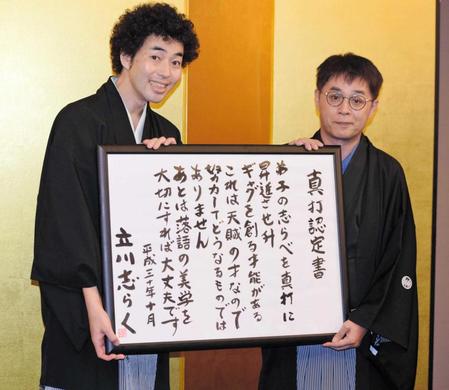 真打認定書
弟子の志らべを真打に
昇進させ升
ギャグを創る才能がある
これは天賦の才なので
努力してどうなるものでは
ありません
あとは落語の美学を
大切にすれば大丈夫です
平成三十年十月
立川志らく